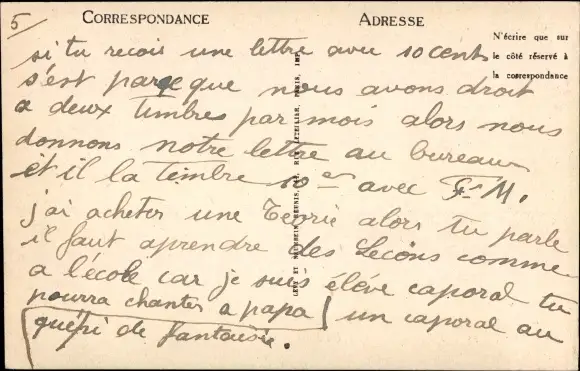 5
CORRESPONDANCE
ADRESSE
N'écrire que sur
le côté réservé à
la correspondance
si tu recois une lettre avec 10 cent
s'est parçe que nous avons droit
a deux timbres par mois alors nous
donnons notre lettre au bureau
et il la timbre 10 avec F.M.
j'ai acheter une Teorie alors tu parle
il faut aprendre des Lecons comme
a l'école car je suis éléve caporal tu
pourra chanter a papa un caporal au
quépi de fantaisie.